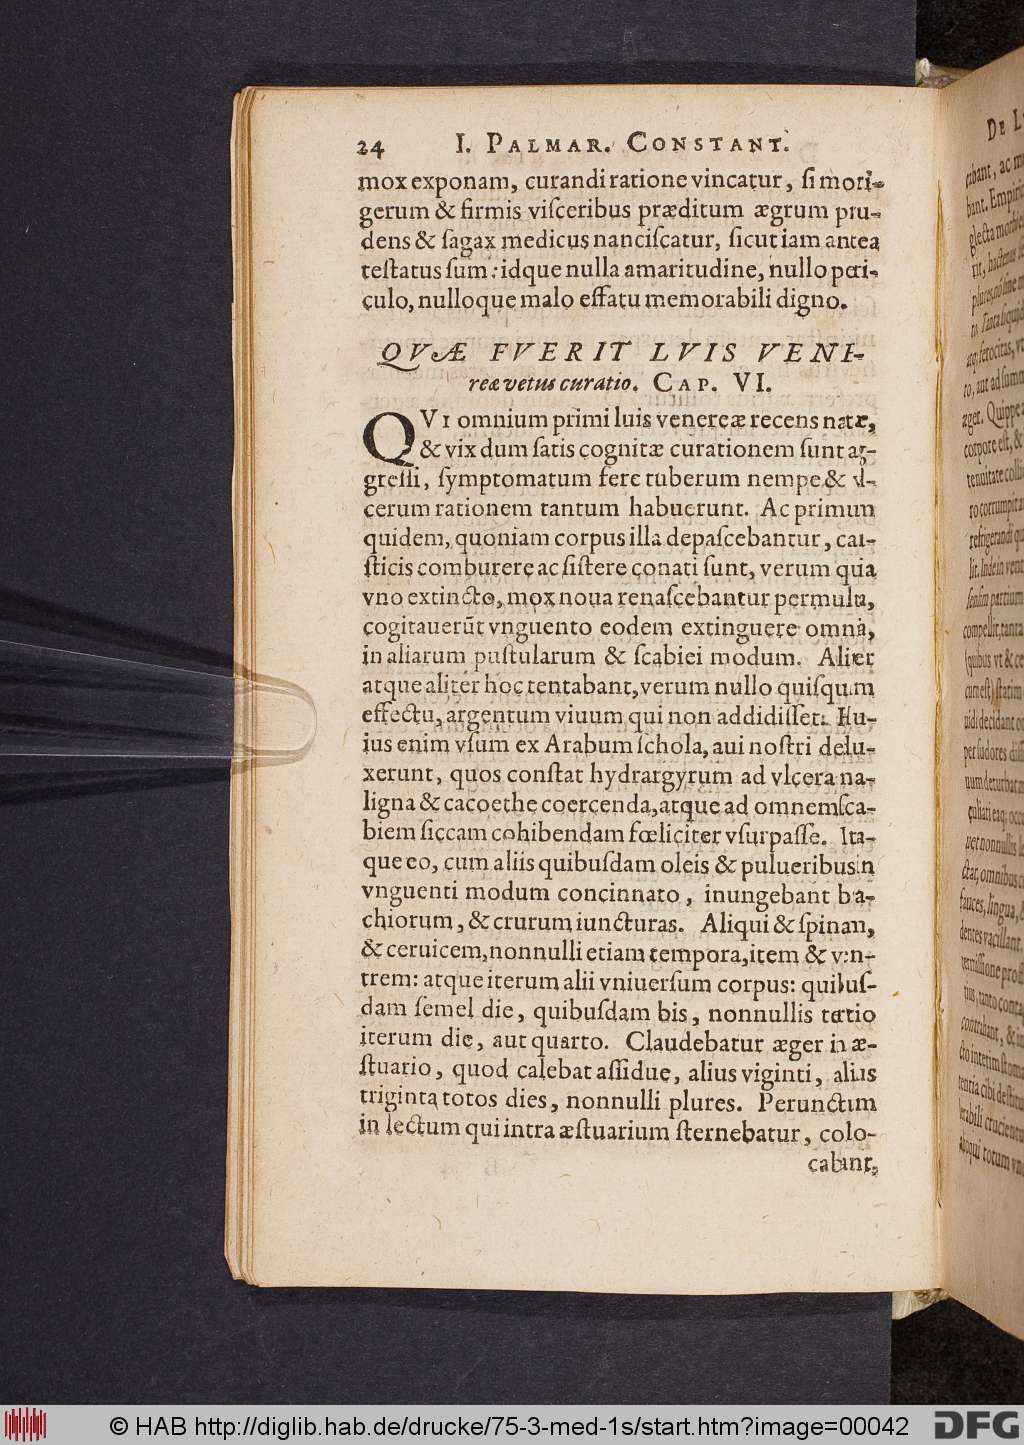 24 I. PALMAR. CONSTANT.
mox exponam, curandi ratione vincatur, si mori-
gerum & firmis visceribus præditum ægrum pru-
dens & sagax medicus nanciscatur, sicut iam antea
testatus sum: idque nulla amaritudine, nullo peri-
culo, nulloque malo effatu memorabili digno.
QVÆ FVERIT LVIS VENE-
reæ vetus curatio. CAP. VI.
QVI omnium primi luis venereæ recens natæ,
& vix dum satis cognitæ curationem sunt ag-
gressi, symptomatum fere tuberum nempe & vl-
cerum rationem tantum habuerunt. Ac primum
quidem, quoniam corpus illa depascebantur, cau-
sticis comburere ac sistere conati sunt, verum quia
vno extincto, mox noua renascebantur permulta,
cogitauerūt vnguento eodem extinguere omnia,
in aliarum pustularum & scabiei modum. Aliter
atque aliter hoc tentabant, verum nullo quisquam
effectu, argentum viuum qui non addidisset. Hu-
ius enim vsum ex Arabum schola, aui nostri delu-
xerunt, quos constat hydrargyrum ad vlcera ma-
ligna & cacoethe coercenda, atque ad omnem sca-
biem siccam cohibendam fœliciter vsurpasse. Ita-
que eo, cum aliis quibusdam oleis & pulueribus in
vnguenti modum concinnato, inungebant bra-
chiorum, & crurum iuncturas. Aliqui & spinam,
& ceruicem, nonnulli etiam tempora, item & ven-
trem: atque iterum alii vniuersum corpus: quibus-
dam semel die, quibusdam bis, nonnullis tertio
iterum die, aut quarto. Claudebatur æger in æ-
stuario, quod calebat assidue, alius viginti, alius
triginta totos dies, nonnulli plures. Perunctum
in lectum qui intra æstuarium sternebatur, colo-
cabant,
DE L
cabant, ac m
bant. Empiri
glecta morbi
© HAB http://diglib.hab.de/drucke/75-3-med-1s/start.htm?image=00042
DFG